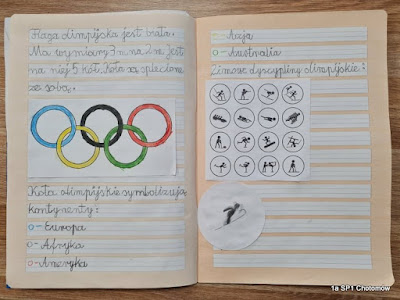 Flaga olimpijska jest biała.
Ma wymiary 3 m na 2 m. Jest
na niej 5 kół. Koła są splecione
ze sobą.
Koła olimpijskie symbolizują
kontynenty:
O - Europa
O - Afryka
O - Ameryka
O - Azja
O - Australia
Zimowe dyscypliny olimpijskie:
1a SP1 Chotomow